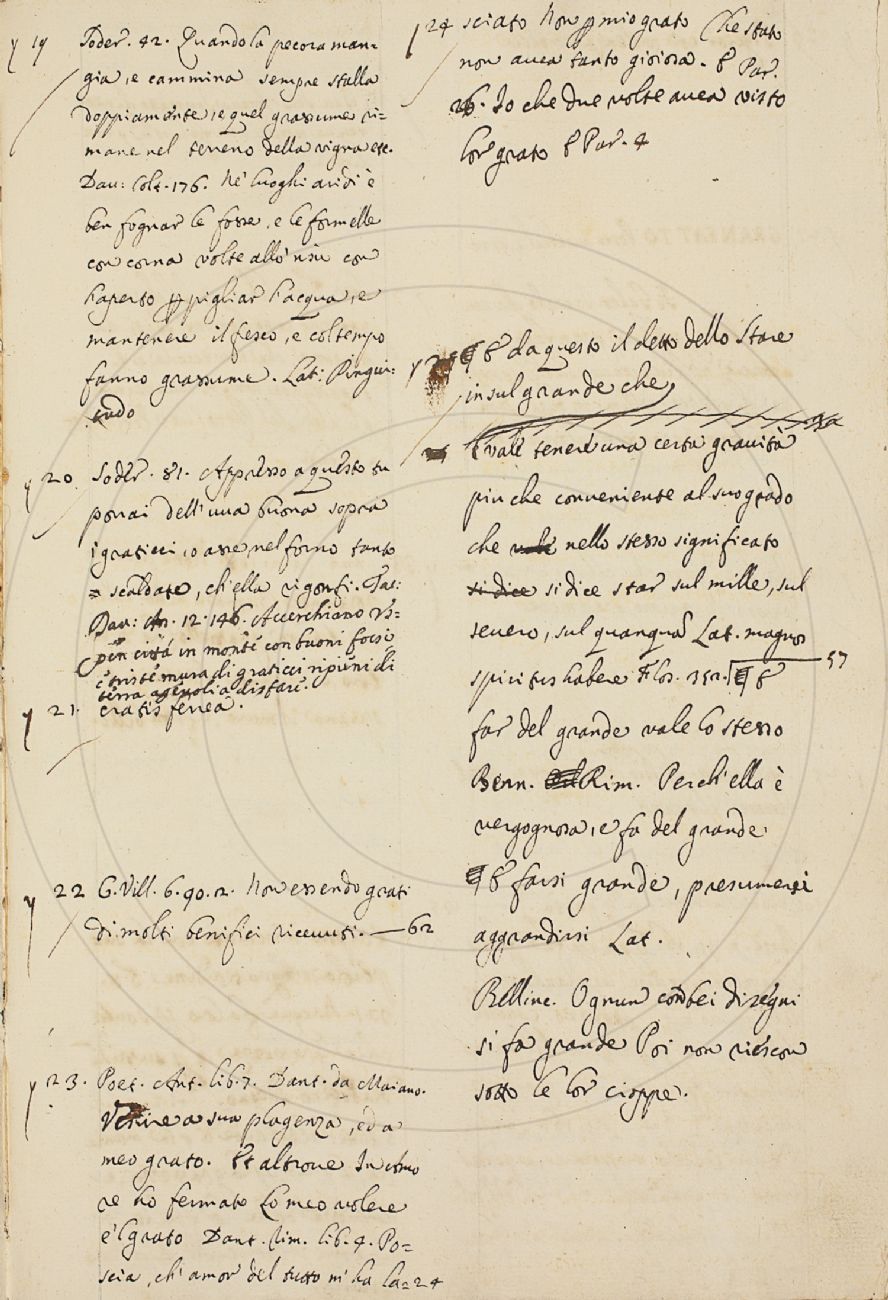 19 Soder. 42. Quando la pecora man=
gia, e cammina sempre stalla
doppiamente, e quel grassume ri=
mane nel terreno della vigna etc.
Dav: Colt. 176. Ne' luoghi aridi è
ben fognar le fosse, e le formelle
con corna volte all'insù con
l'aperto p pigliar l'acqua, e
mantenere il fresco, e col tempo
fanno grassume. Lat: Pingui=
tudo
20 Soder. 81. Appresso a questo tu
porrai dell'uva buona sopra
i graticci, o asse nel forno tanto
= scaldate, ch'ella rigonfi. Tac:
Dav: An. 12. 146. Accerchiano
città in monte con buoni fossi
e triste mura di graticci ripieni di
terra agevoli a disfare.
21. cratis ferrea.
22 G. Vill. 6. 90. 2. Non essendo grati
di molti benifici ricevuti. — 62
23. Poet. Ant. lib. 7. Dant. da Maiano.
Venire a sua plagenza, ed a
meo grato. Et altrove In Amo
re ho fermato Lo meo volere
e 'l grato Dant. Rim. lib. 4. Po=
scia, ch'amor del tutto m'ha la= 24
24 sciato Non p mio grato Che stato
non avea tanto gioioso. E Par.
26. Io che due volte avea visto
lor grato E Par. 4
E da questo il detto dello Stare
in sul grande che
vale tenere una certa gravità
piu che conveniente al suo grado
che nello stesso significato
si dice si dice star sul mille, sul
severo, sul quanquam Lat. magnos
spiritus habere Filos. 352. E 57
far del grande vale lo stesso
Bern. Rim. Perch'ella è
vergognosa, e fa del grande
E farsi grande, presumersi
aggrandirsi Lat.
Bellinc. Ognun con bei disegni
si fa grande Poi non riescon
sotto le lor cioppe.